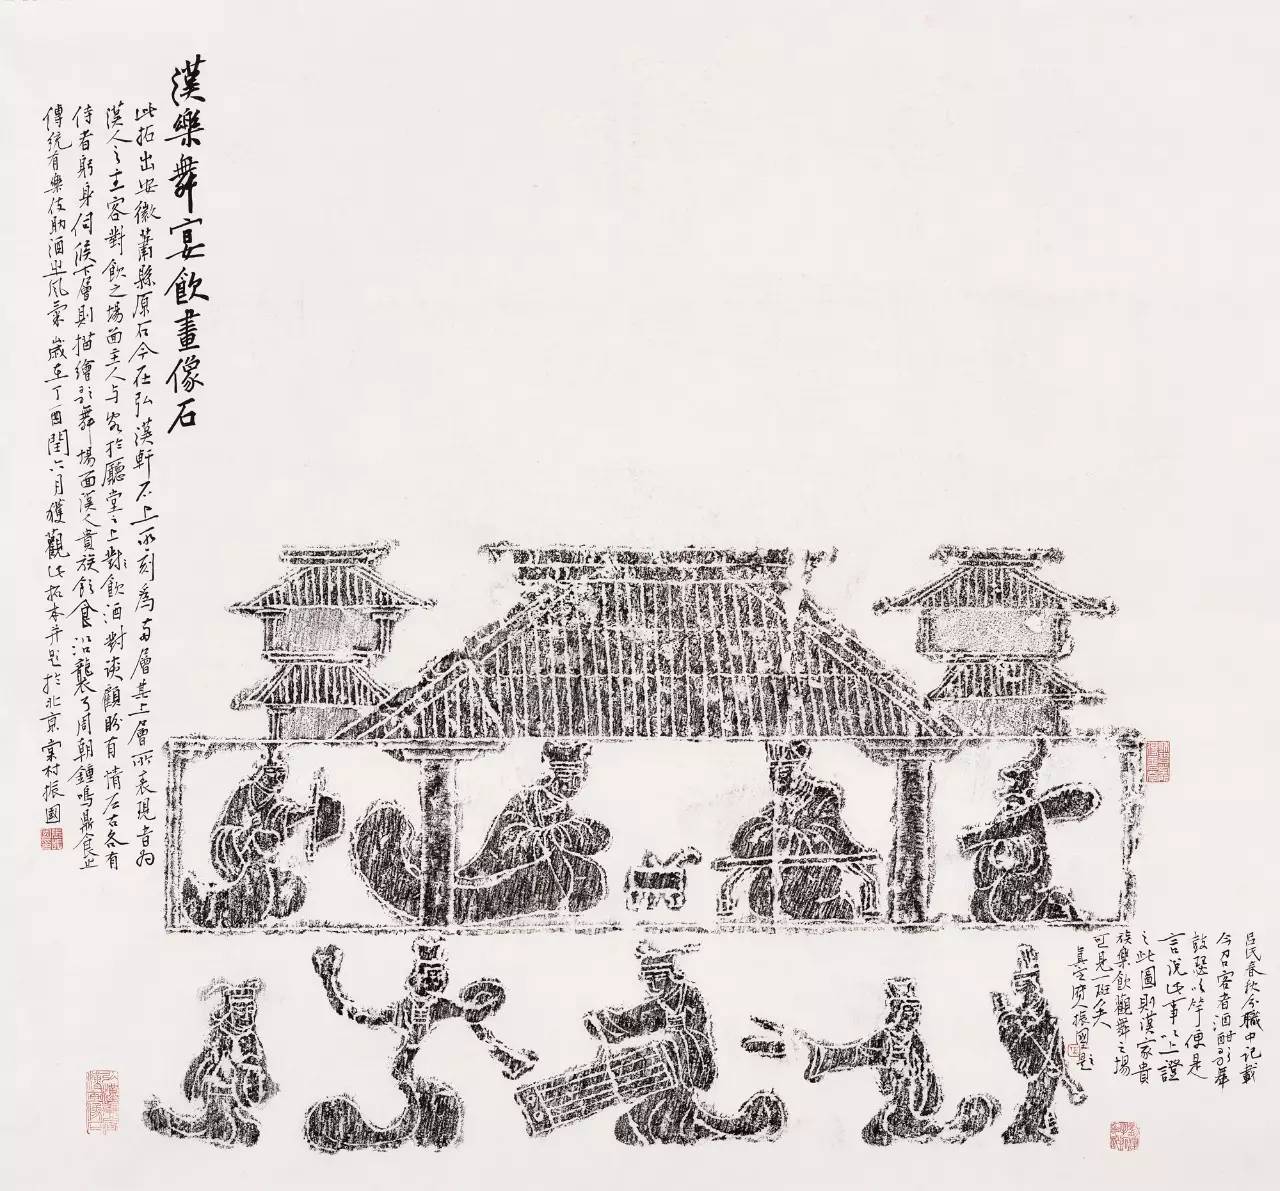 漢樂舞宴飲畫像石
此拓出安徽蕭縣原石今在弘漢軒石上所刻爲兩層其上層所表現者为
漢人之主客對飲之場面主人与客於廳堂之上對飲酒對談顧盼有情左右各有
侍者躬身伺候下層則描繪歌舞場面漢人貴族飲食沿襲了周朝鍾鳴鼎食之
傳統有樂伎助酒之風氣歲在丁酉閏六月獲觀此拓本并題於北京宋村振國
呂氏春秋分職中記載
今召客者酒酣歌舞
鼓瑟吹竽便是
言說此事之上證
之此圖則漢家貴
族樂飲觀舞之場
可見一斑矣
真定齊人振國題